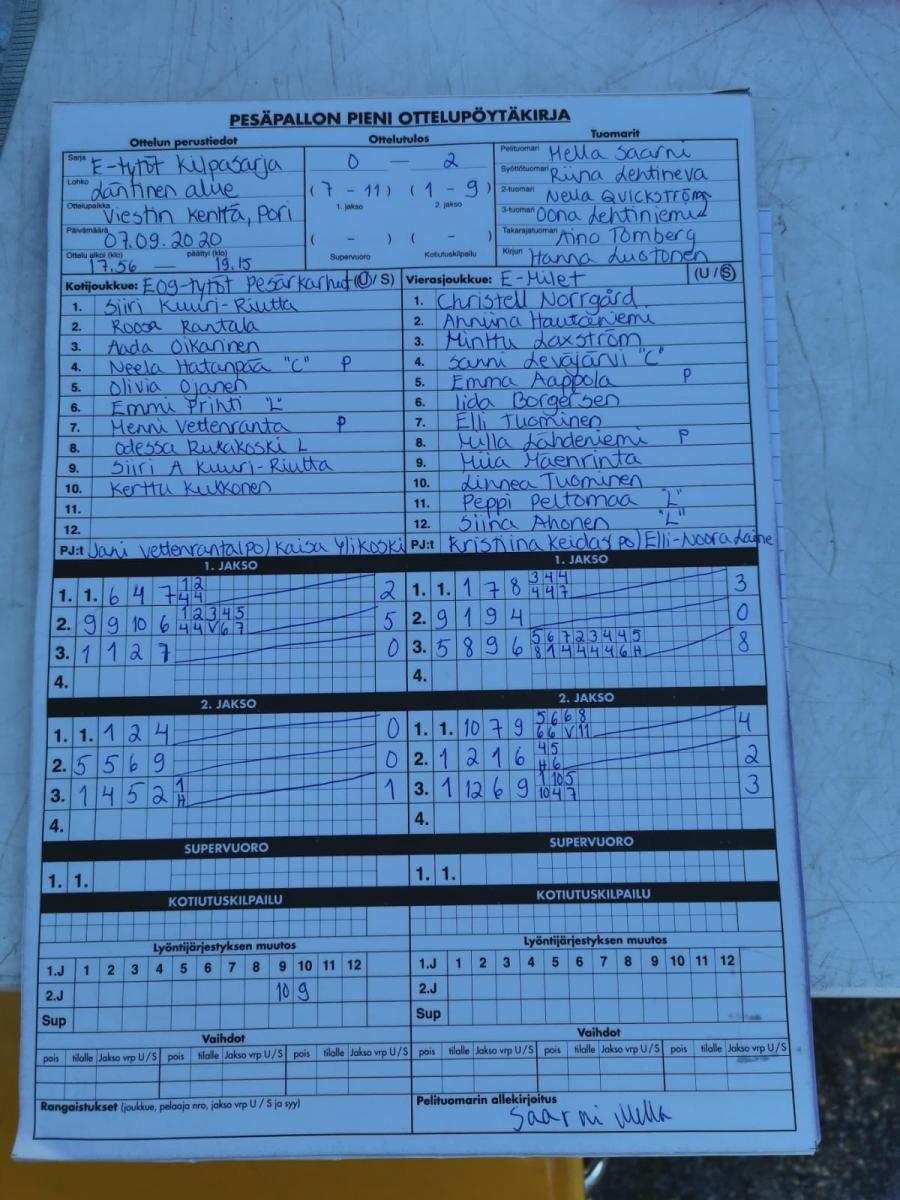 PESÄPALLON PIENI OTTELUPÖYTÄKIRJA
Ottelun perustiedot
Sarja E-tytöt Kilpasarja
Lohko Läntinen alue
Ottelupaikka Viestin Kenttä, Pori
Päivämäärä 07.09.2020
Ottelu alkoi (klo) päättyi (klo)
17.56 — 19.15
Ottelutulos
0 — 2
(7 - 11) (1 - 9)
1. jakso 2. jakso
( - ) ( - )
Supervuoro Kotiutuskilpailu
Tuomarit
Pelituomari Hella Saarni
Syöttötuomari Riina Lehtineva
2-tuomari Neula Quickström
3-tuomari Oona Lehtiniemi
Takarajatuomari Aino Tomberg
Kirjuri Hanna Luotonen
Kotijoukkue: E09-tytöt Pesäkarhut (U/S)
1. Siiri Kuuri-Riutta
2. Roosa Rantala
3. Aada Oikarinen
4. Neela Hatanpää "C" P
5. Olivia Ojanen
6. Emmi Prihti "L"
7. Henni Vettenranta P
8. Odessa Rukakoski L
9. Siiri A Kuuri-Riutta
10. Kerttu Kukkonen
11.
12.
PJ:t Jani Vettenranta(po) Kaisa Ylikoski
Vierasjoukkue: E-Milet (U/S)
1. Christell Norrgård
2. Anniina Hautaniemi
3. Minttu Laxström
4. Sanni Leväjärvi "C"
5. Emma Aappola P
6. Iida Borgersen
7. Elli Tuominen
8. Milla Lähdeniemi P
9. Miia Mäenrinta
10. Linnea Tuominen
11. Peppi Peltomaa "L"
12. Siina Ahonen "L"
PJ:t Kristiina Keidas(po) Elli-Noora Laine
1. JAKSO
1. 1. 6 4 7 1 2 2
4 4
2. 9 9 10 6 1 2 3 4 5 5
4 4 V 6 7
3. 1 1 2 7 0
4.
1. JAKSO
1. 1. 1 7 8 3 4 4 3
4 4 7
2. 9 1 9 4 0
3. 5 8 9 6 5 6 7 2 3 4 4 5 8
8 1 4 4 4 4 6 H
4.
2. JAKSO
1. 1. 1 2 4 0
2. 5 5 6 9 0
3. 1 4 5 2 1 1
H
4.
2. JAKSO
1. 1. 10 7 9 5 6 6 8 4
6 6 V 11
2. 1 2 1 6 4 5 2
H 6
3. 1 12 6 9 1 10 5 3
10 4 7
4.
SUPERVUORO
1. 1.
1. 1.
KOTIUTUSKILPAILU
KOTIUTUSKILPAILU
Lyöntijärjestyksen muutos
1.J 1 2 3 4 5 6 7 8 9 10 11 12
2.J 10 9
Sup
Lyöntijärjestyksen muutos
1.J 1 2 3 4 5 6 7 8 9 10 11 12
2.J
Sup
Vaihdot
pois tilalle Jakso vrp U/S pois tilalle Jakso vrp U/S pois tilalle Jakso vrp U/S
Vaihdot
pois tilalle Jakso vrp U/S pois tilalle Jakso vrp U/S pois tilalle Jakso vrp U/S
Rangaistukset (joukkue, pelaaja nro, jakso vrp U / S ja syy)
Pelituomarin allekirjoitus
Saarni Hella